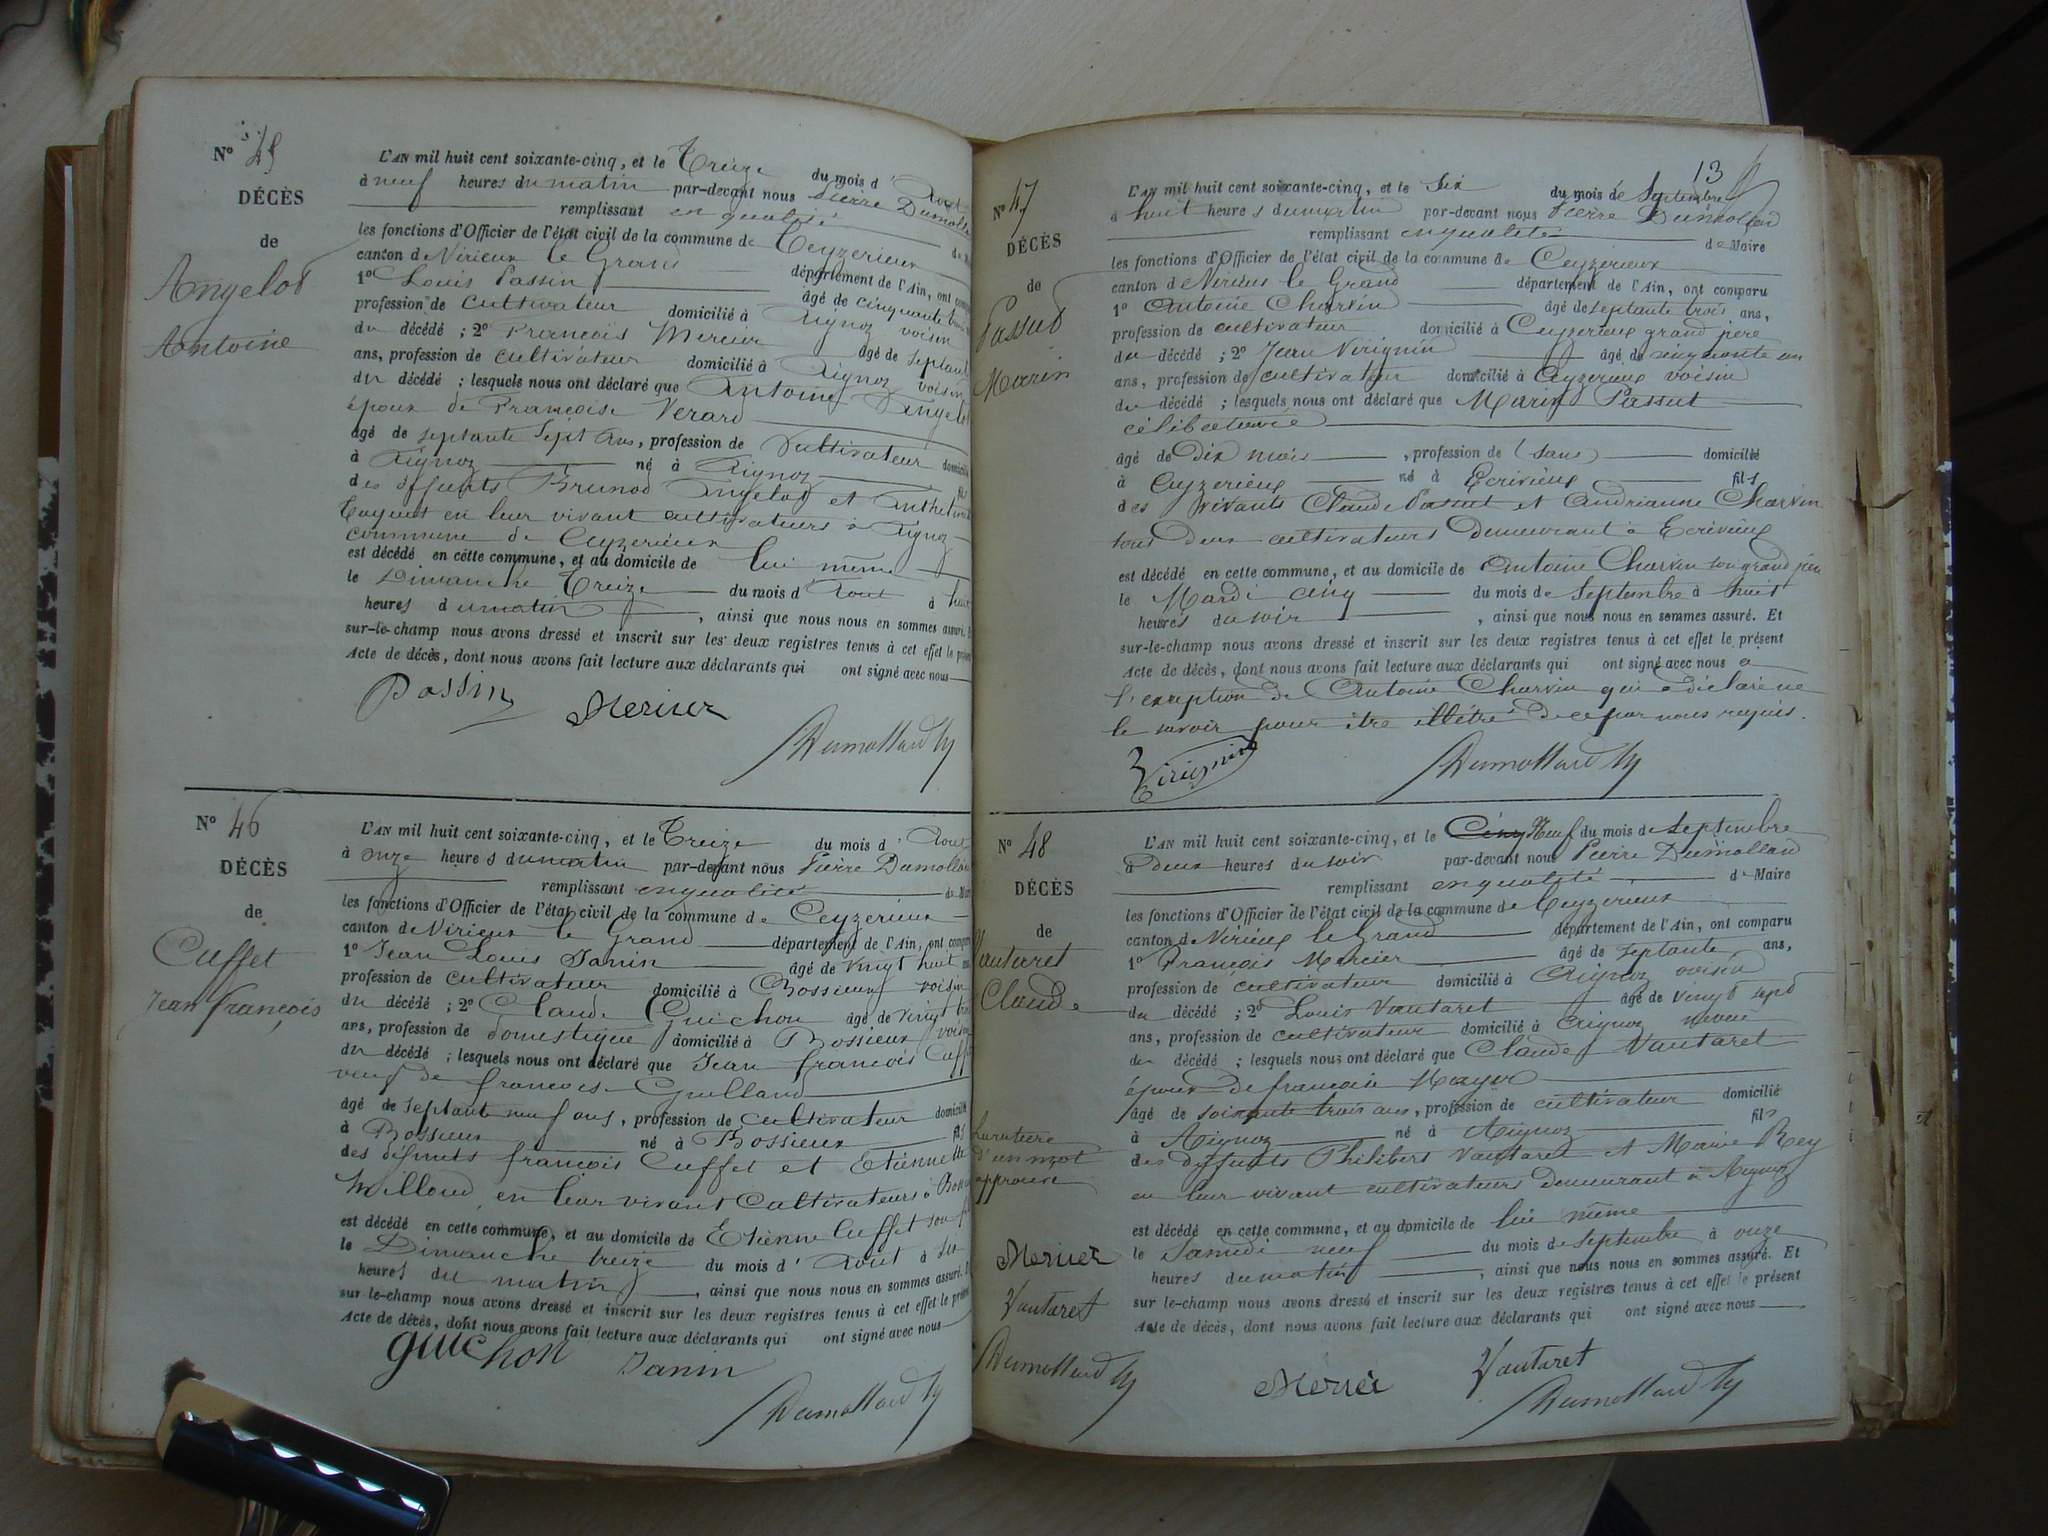 N° 45
DÉCÈS
de
Angelot
Antoine
L'AN mil huit cent soixante-cinq, et le Treize du mois d'Aout
à neuf heures du matin par-devant nous Pierre Dumollard
remplissant en qualité de
les fonctions d'Officier de l'état civil de la commune de Ceyzerieux
canton de Virieux le Grand département de l'Ain, ont comparu
1° Louis Passin âgé de cinquante
profession de cultivateur domicilié à Aignoz voisin
du décédé ; 2° François Mercier âgé de septante
ans, profession de cultivateur domicilié à Aignoz voisin
du décédé ; lesquels nous ont déclaré que Antoine Angelot
époux de Françoise Verard
âgé de septante sept ans, profession de Cultivateur domicilié
à Aignoz né à Aignoz fils
des deffunts Brunod Angelot et
en leur vivant cultivateurs à Aignoz
commune de Ceyzerieux
est décédé en cette commune, et au domicile de lui même
le Dimanche Treize du mois d'Aout à huit
heures du matin, ainsi que nous nous en sommes assuré. Et
sur-le-champ nous avons dressé et inscrit sur les deux registres tenus à cet effet le présent
Acte de décès, dont nous avons fait lecture aux déclarants qui ont signé avec nous
Passin Mercier
Dumollard
N° 46
DÉCÈS
de
Cuffet
Jean françois
L'AN mil huit cent soixante-cinq, et le Treize du mois d'Aout
à onze heures du matin par-devant nous Pierre Dumollard
remplissant en qualité de Maire
les fonctions d'Officier de l'état civil de la commune de Ceyzerieux
canton de Virieux le Grand département de l'Ain, ont comparu
1° Jean Louis Janin âgé de vingt huit ans
profession de cultivateur domicilié à Bossieux voisin
du décédé ; 2° Claude Guichon âgé de vingt
ans, profession de domestique domicilié à Bossieux voisin
du décédé ; lesquels nous ont déclaré que Jean françois Cuffet
veuf de françoise Guilland
âgé de septante neuf ans, profession de cultivateur domicilié
à Bossieux né à Bossieux fils
des defunts françois Cuffet et Etiennette
Milloud, en leur vivant Cultivateurs à
est décédé en cette commune, et au domicile de Etienne Cuffet son fils
le Dimanche treize du mois d'Aout à six
heures du matin, ainsi que nous nous en sommes assuré. Et
sur le-champ nous avons dressé et inscrit sur les deux registres tenus à cet effet le présent
Acte de décès, dont nous avons fait lecture aux déclarants qui ont signé avec nous
guichon Janin
Dumollard
13
N° 47
DÉCÈS
de
Passut
Marin
L'AN mil huit cent soixante-cinq, et le Six du mois de Septembre
à huit heures du matin par-devant nous Pierre Dumollard
remplissant en qualité de Maire
les fonctions d'Officier de l'état civil de la commune de Ceyzerieux
canton de Virieux le Grand département de l'Ain, ont comparu
1° Antoine Charvin âgé de septante trois ans,
profession de cultivateur domicilié à Ceyzerieux grand père
du décédé ; 2° Jean Virignin âgé de cinquante un
ans, profession de cultivateur domicilié à Ceyzerieux voisin
du décédé ; lesquels nous ont déclaré que Marin Passut
célibataire
âgé de Dix mois, profession de (sans) domicilié
à Ceyzerieux né à Ecrivieux fils
des vivants Claude Passut et Andrianne Charvin
tous deux cultivateurs demeurant à Ecrivieux
est décédé en cette commune, et au domicile de Antoine Charvin son grand père
le Mardi cinq du mois de Septembre à huit
heures du soir, ainsi que nous nous en sommes assuré. Et
sur-le-champ nous avons dressé et inscrit sur les deux registres tenus à cet effet le présent
Acte de décès, dont nous avons fait lecture aux déclarants qui ont signé avec nous à
l'exception de Antoine Charvin qui a déclaré ne
le savoir pour être illétré de ce par nous requis.
Virignin Dumollard
N° 48
DÉCÈS
de
Vautaret
Claude
L'AN mil huit cent soixante-cinq, et le Cinq Neuf du mois de Septembre
à deux heures du soir par-devant nous Pierre Dumollard
remplissant en qualité de Maire
les fonctions d'Officier de l'état civil de la commune de Ceyzerieux
canton de Virieux le Grand département de l'Ain, ont comparu
1° François Mercier âgé de septante ans,
profession de cultivateur domicilié à Aignoz voisin
du décédé ; 2° Louis Vautaret âgé de vingt sept
ans, profession de cultivateur domicilié à Aignoz neveu
du décédé ; lesquels nous ont déclaré que Claude Vautaret
époux de françoise
âgé de soixante trois ans, profession de cultivateur domicilié
à Aignoz né à Aignoz fils
des deffunts Philibert Vautaret et Marie Rey
en leur vivant cultivateurs demeurant à Aignoz
est décédé en cette commune, et au domicile de lui même
le Samedi neuf du mois de Septembre à onze
heures du matin, ainsi que nous nous en sommes assuré. Et
sur le-champ nous avons dressé et inscrit sur les deux registres tenus à cet effet le présent
Acte de décès, dont nous avons fait lecture aux déclarants qui ont signé avec nous
La rature
d'un mot
approuvée
Mercier
Vautaret
Dumollard
Mercier Vautaret
Dumollard